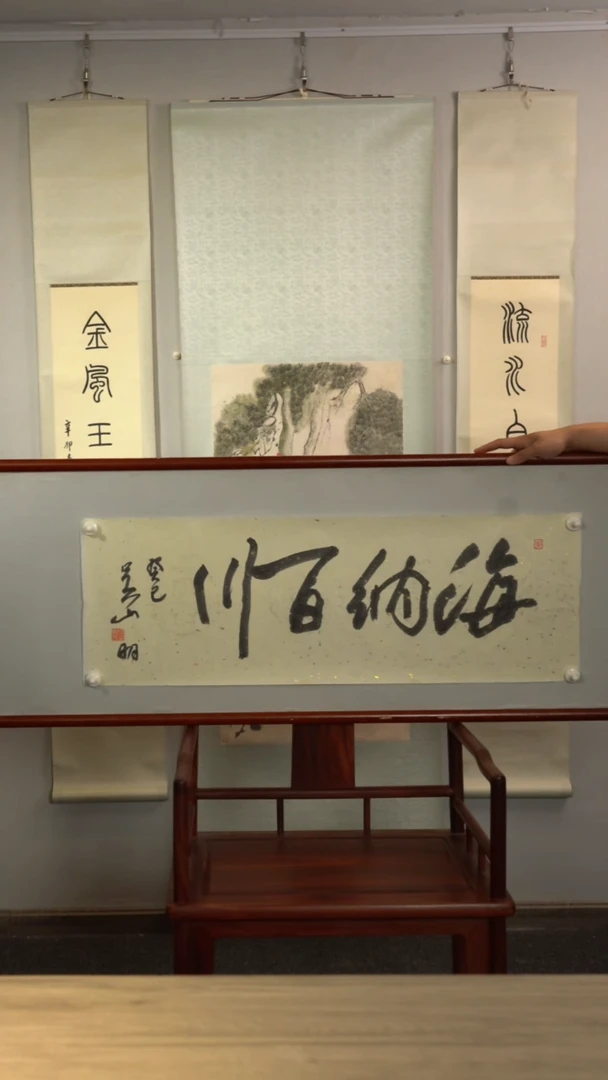 海纳百川
癸巳
吴山明
流水自
金風王
辛卯